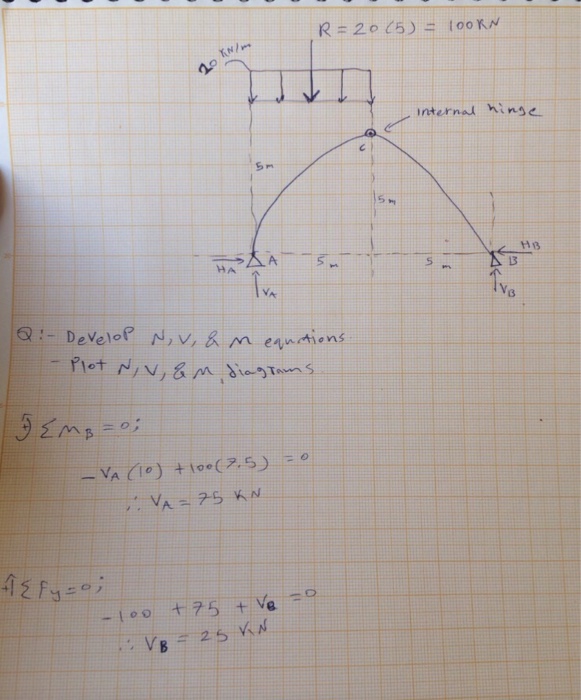 R = 20 (5) = 100 KN
20 KN/m
internal hinge
C
5m
5m
HA A 5 m 5 m B HB
VA VB
Q:- Develop N, V, & M equations.
- Plot N, V, & M diagrams
+) ΣMB = 0;
-VA (10) + 100(7.5) = 0
∴ VA = 75 KN
+↑ΣFy = 0;
-100 + 75 + VB = 0
∴ VB = 25 KN